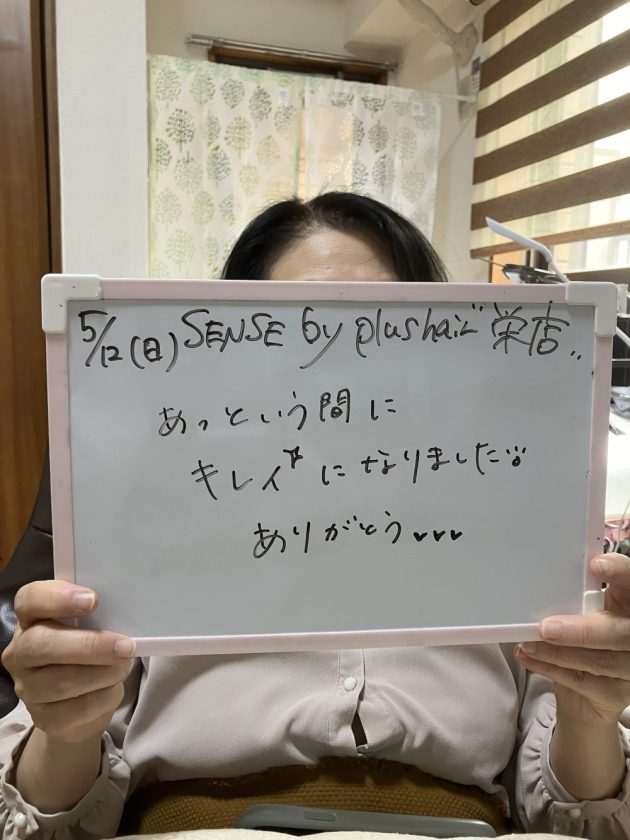 5/12(日) SENSE by plushair 栄店..
あっという間に
キレイ☆になりました
ありがとう♥♥♥